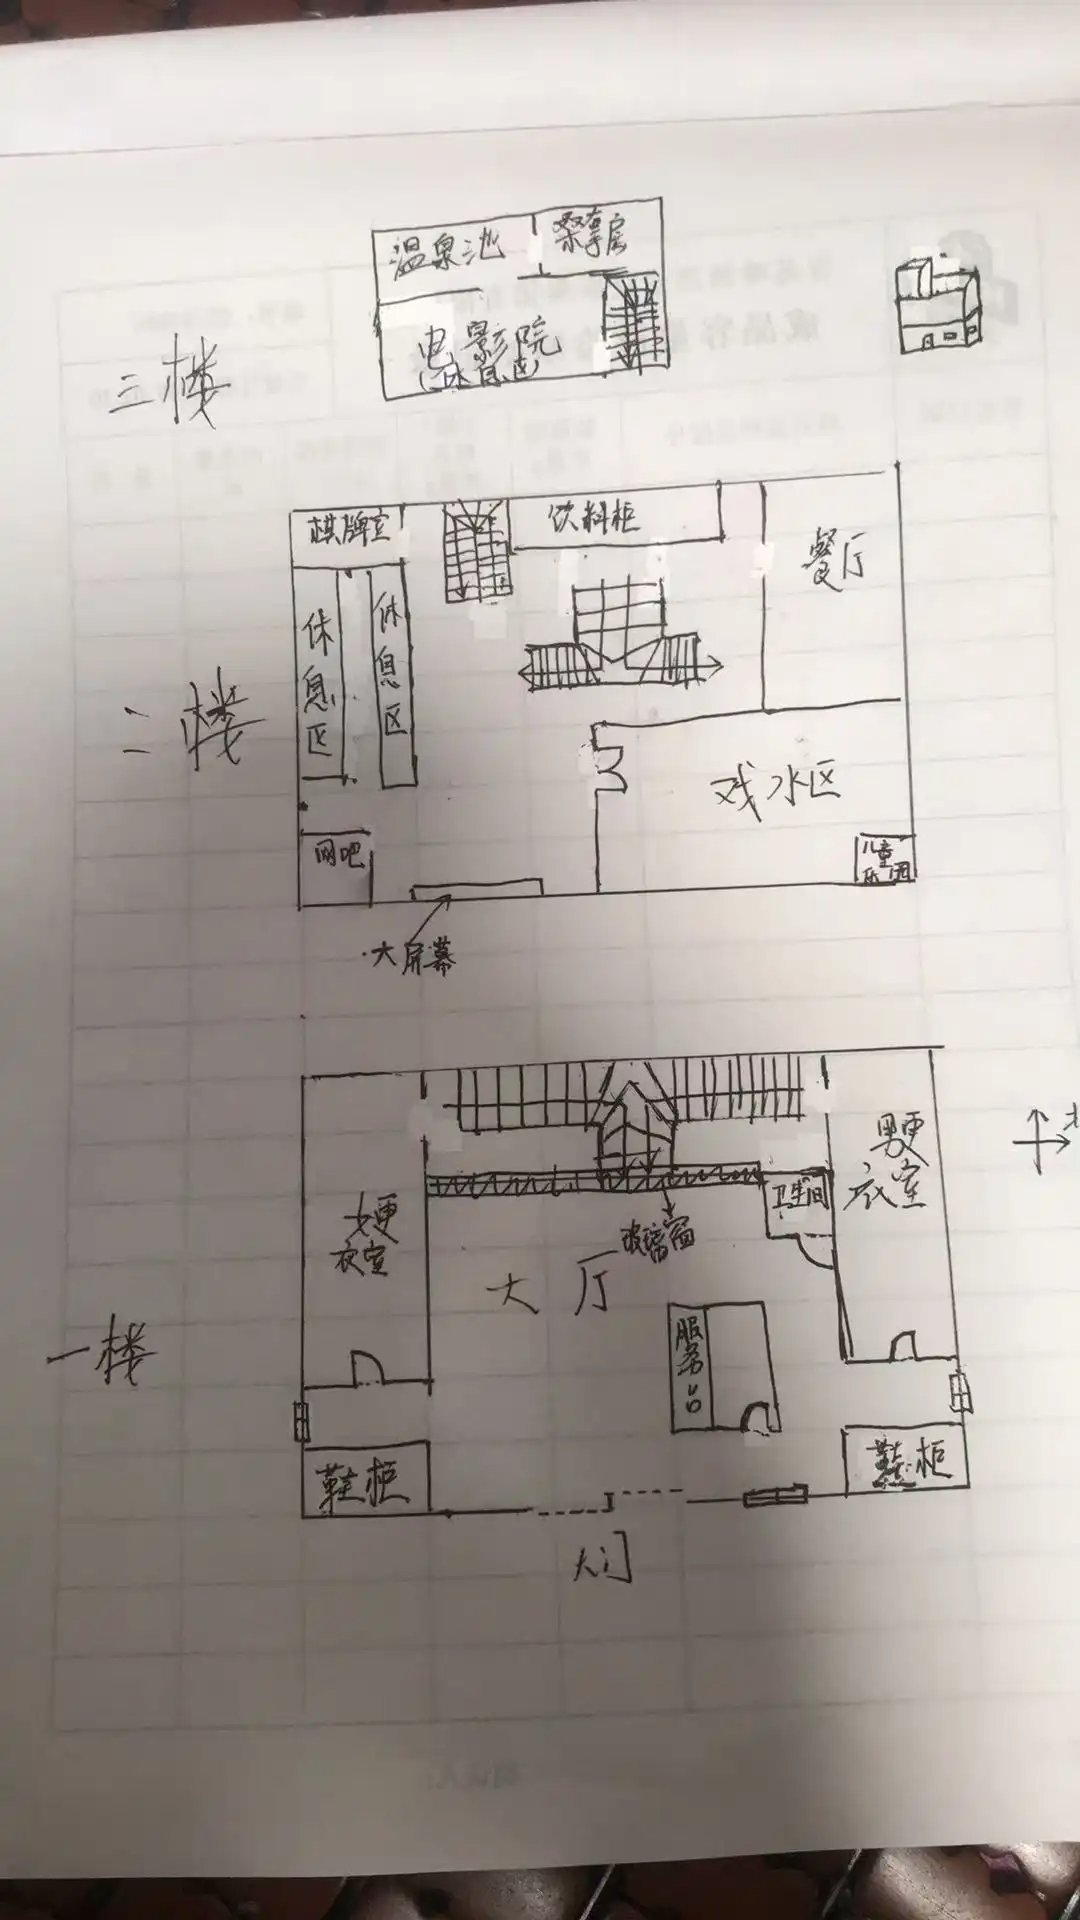 温泉池
桑拿房
电影院
(休息区)
三楼
棋牌室
饮料柜
餐厅
休息区
休息区
二楼
戏水区
网吧
儿童
乐园
大屏幕
男更
衣室
卫生间
女更
衣室
玻璃窗
大厅
服务台
一楼
鞋柜
鞋柜
大门